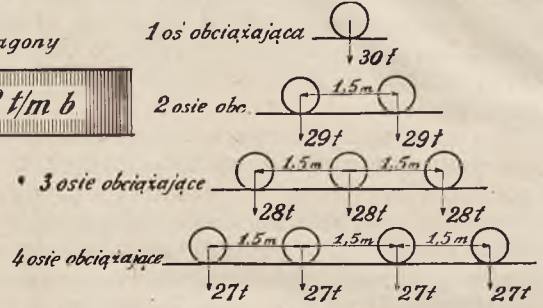 1 oś obciążająca
agony
30t
t/m b
2 osie obc.
1,5m
29t 29t
3 osie obciążające
1,5m 1,5m
28t 28t 28t
4 osie obciążające
1,5m 1,5m 1,5m
27t 27t 27t 27t